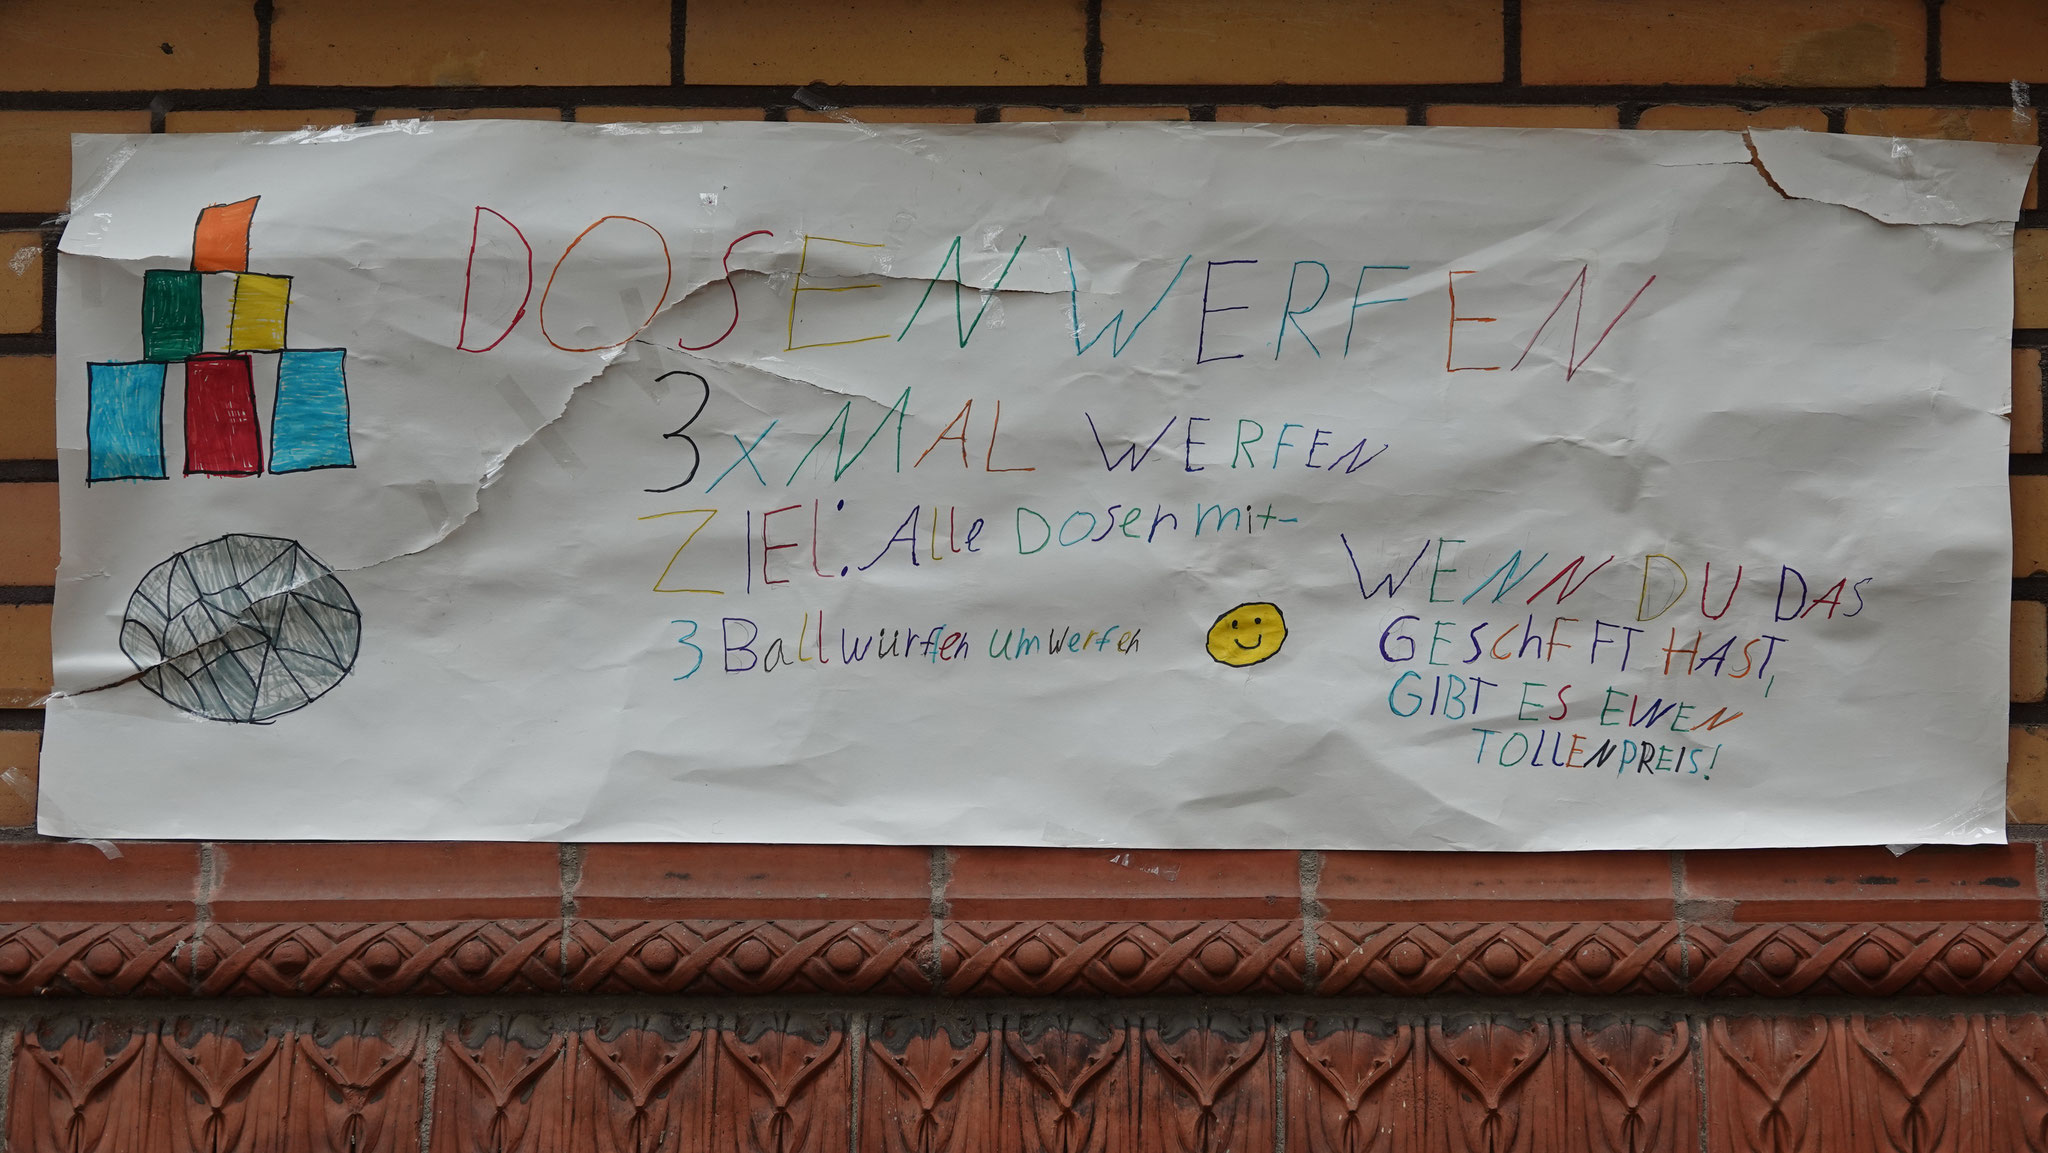 DOSENWERFEN
3x MAL WERFEN
ZIEL: Alle Dosen mit-
3 Ballwürffen umwerfen
WENN DU DAS
GESCHFFT HAST,
GIBT ES EINEN
TOLLENPREIS!